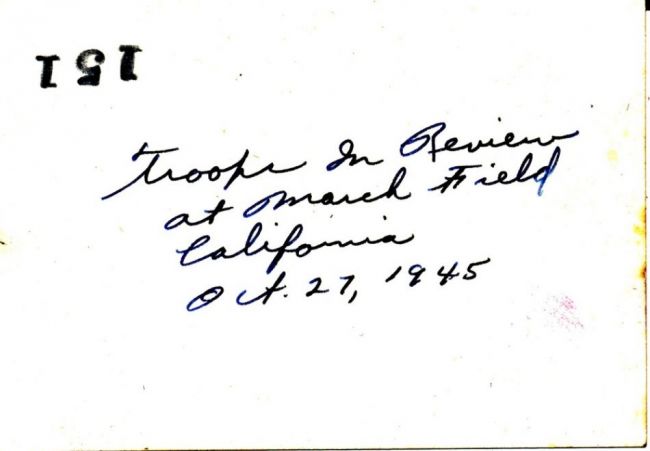 151
Troops In Review
at March Field
California
Oct. 27, 1945